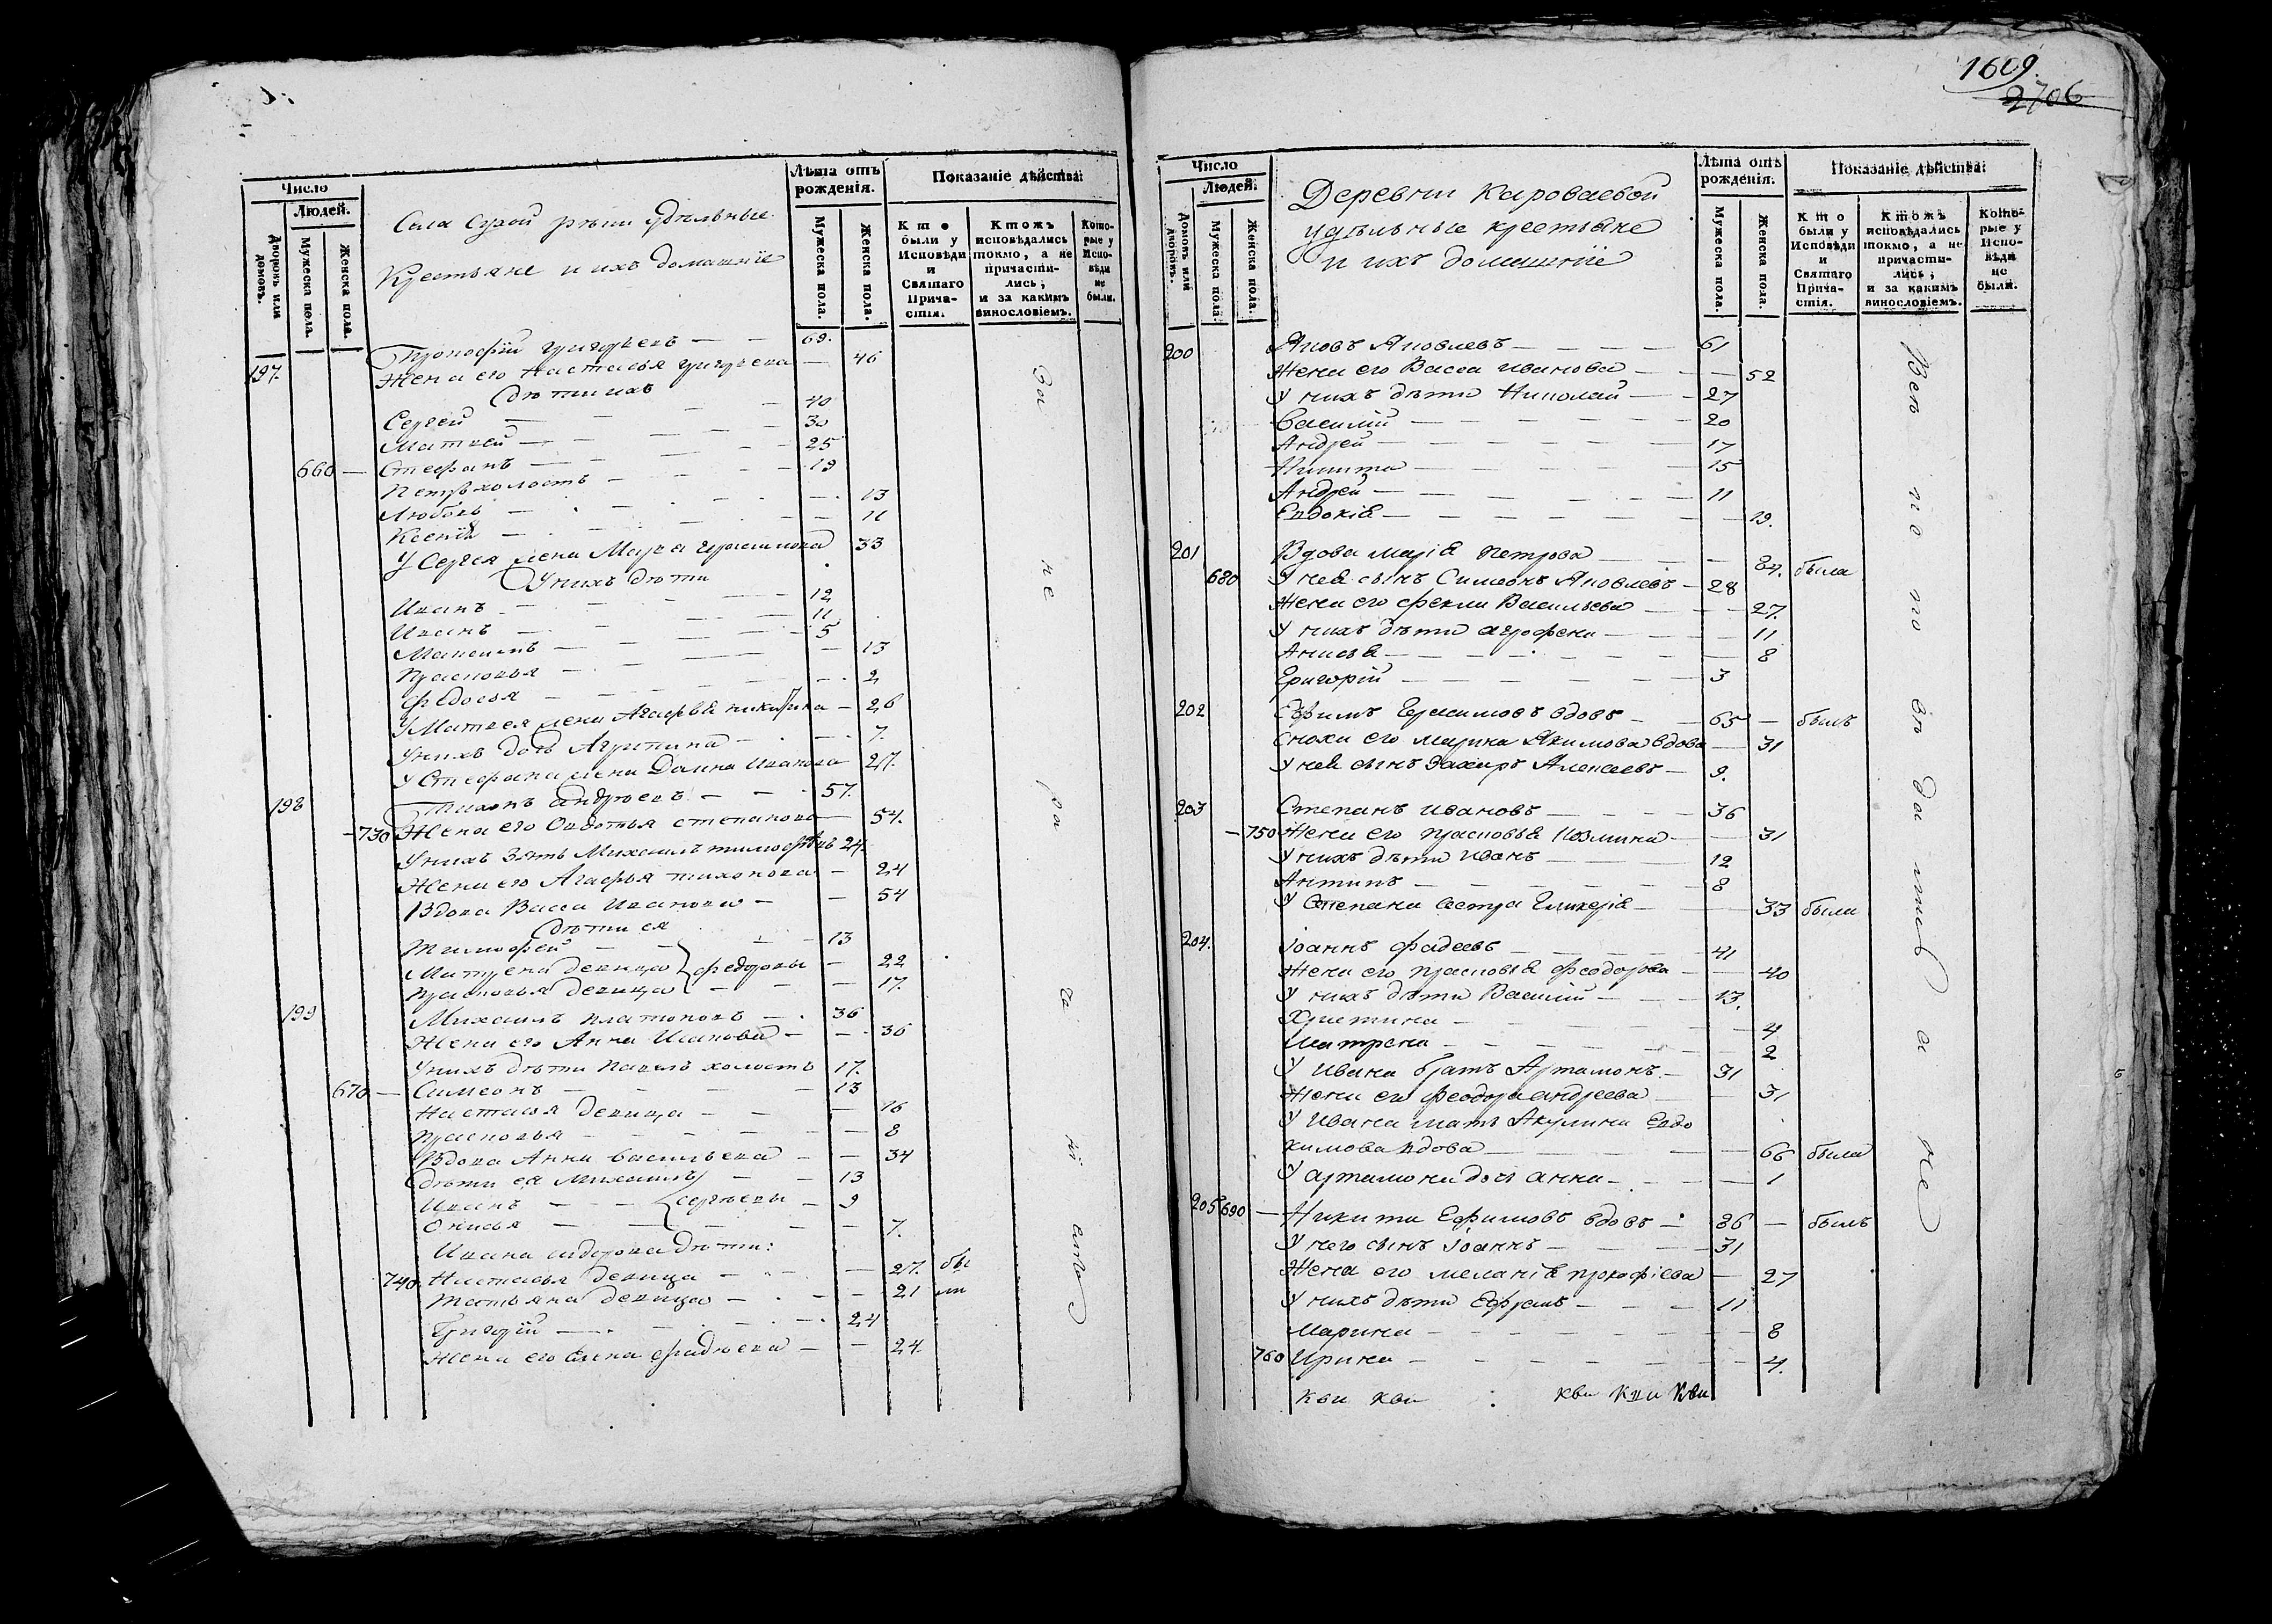 Число
Людей.
Дворовъ или домовъ.
Мужеска пола.
Женска пола.
Села Сухой рѣчи удѣльные
Крестьяне и ихъ домашніе
Лѣта отъ рожденія.
Мужеска пола.
Женска пола.
Показаніе дѣйства:
Кто были у Исповѣди и Святаго Прича- стія.
Ктожъ исповѣдались токмо, а не причасти- лись; и за какимъ винословіемъ.
Кото- рые у Испо- вѣди не были.
Прокофій Григорьевъ — — 69.
197. Жена его Настасья Григорьева — 46
Съ дѣтими
Сергей — — 40
Матвей — — 30
660 — Стефанъ — — 25
Петръ холостъ — — 19
Любовь — — 13
Ксенія — — 11
У Сергея жена Марѳа Герасимова 33
У нихъ дѣти
Иванъ — — 12
Иванъ — — 11
Максимъ — — 5
Прасковья — — 13
Федосья — — 2
У Матвея жена Агафья Никитина — 26
У нихъ дочь Агрипина — — 7.
У Стефана жена Домна Иванова 27.
198 Тихонъ Андреевъ — — 57.
— 730 Жена его Овдотья Степанова — 54.
У нихъ зять Михаилъ Тимофѣевъ 24.
Жена его Агафья Тихонова — 24
Вдова Васса Иванова — — 54
Дѣти ея
Тимофей — — 13
Матрена девица } Федоровы — 22
Прасковья девица — — 17.
199 Михаилъ Платоновъ — 36
Жена его Анна Исакова — — 36
У нихъ дѣти Павелъ холостъ 17.
670 — Симеонъ — — 13
Настасья девица — — 16
Прасковья — — 8
Вдова Анна Васильева — — 34
Дѣти ея Михаилъ — — 13
Иванъ — — { Сергѣевы — 9
Онисья — — 7.
Ивана Сидорова дѣти:
740 Настасья девица — — 27. бы
Татьяна девица — — 21 ли
Григорій — — 24
Жена его Анна Фадѣева — — 24.
За не ра че ні емъ
1609.
2706
Число
Людей.
Домовъ или дворовъ.
Мужеска пола.
Женска пола.
Деревни Короваевой
удѣльные крестьяне
и ихъ домашніе
Лѣта отъ рожденія.
Мужеска пола.
Женска пола.
Показаніе дѣйства:
Кто были у Исповѣди и Святаго Прича- стія.
Ктожъ исповѣдались токмо, а не причасти- лись; и за какимъ винословіемъ.
Кото- рые у Испо- вѣди не были.
200 Яковъ Яковлевъ — — 61
Жена его Васса Иванова — — 52
У нихъ дѣти Николай — — 27
Василій — — 20
Андрей — — 17
Никита — — 15
Андрей — — 11
Евдокія — — 19.
201 Вдова Марія Петрова — — 84. была
680 У неи сынъ Симеонъ Яковлевъ — 28
Жена его Фекла Васильева — — 27.
У нихъ дѣти Агрофена — — 11
Анисья — — 8
Григорій — — 3
202 Ефимъ Герасимовъ вдовъ — — 65 — былъ
Сноха его Марина Якимова вдова — 31
У неи сынъ Захаръ Алексеевъ — 9.
203 Степанъ Ивановъ — — 36
— 750 Жена его Прасковья Козмина — — 31
У нихъ дѣти Иванъ — — 12
Антипъ — — 8
У Степана сестра Гликерія — — 33 была
204. Іоаннъ Фадеевъ — — 41
Жена его Прасковья Феодорова — — 40
У нихъ дѣти Василій — — 13.
Христина — — 4
Матрена — — 2
У Ивана братъ Артамонъ — 31
Жена его Феодора Андреева — — 31
У Ивана мать Акулина Евдо
кимова вдова — — 66 была
У Артамона дочь Анна — — 1
205 690 — Никита Ефимовъ вдовъ — 86 — былъ
У него сынъ Іоаннъ — — 31
Жена его Меланія Прокофіева — 27
У нихъ дѣти Ефремъ — — 11
Марина — — 8
760 Ирина — — 4.
Кви Кви : Кви Кви Кви